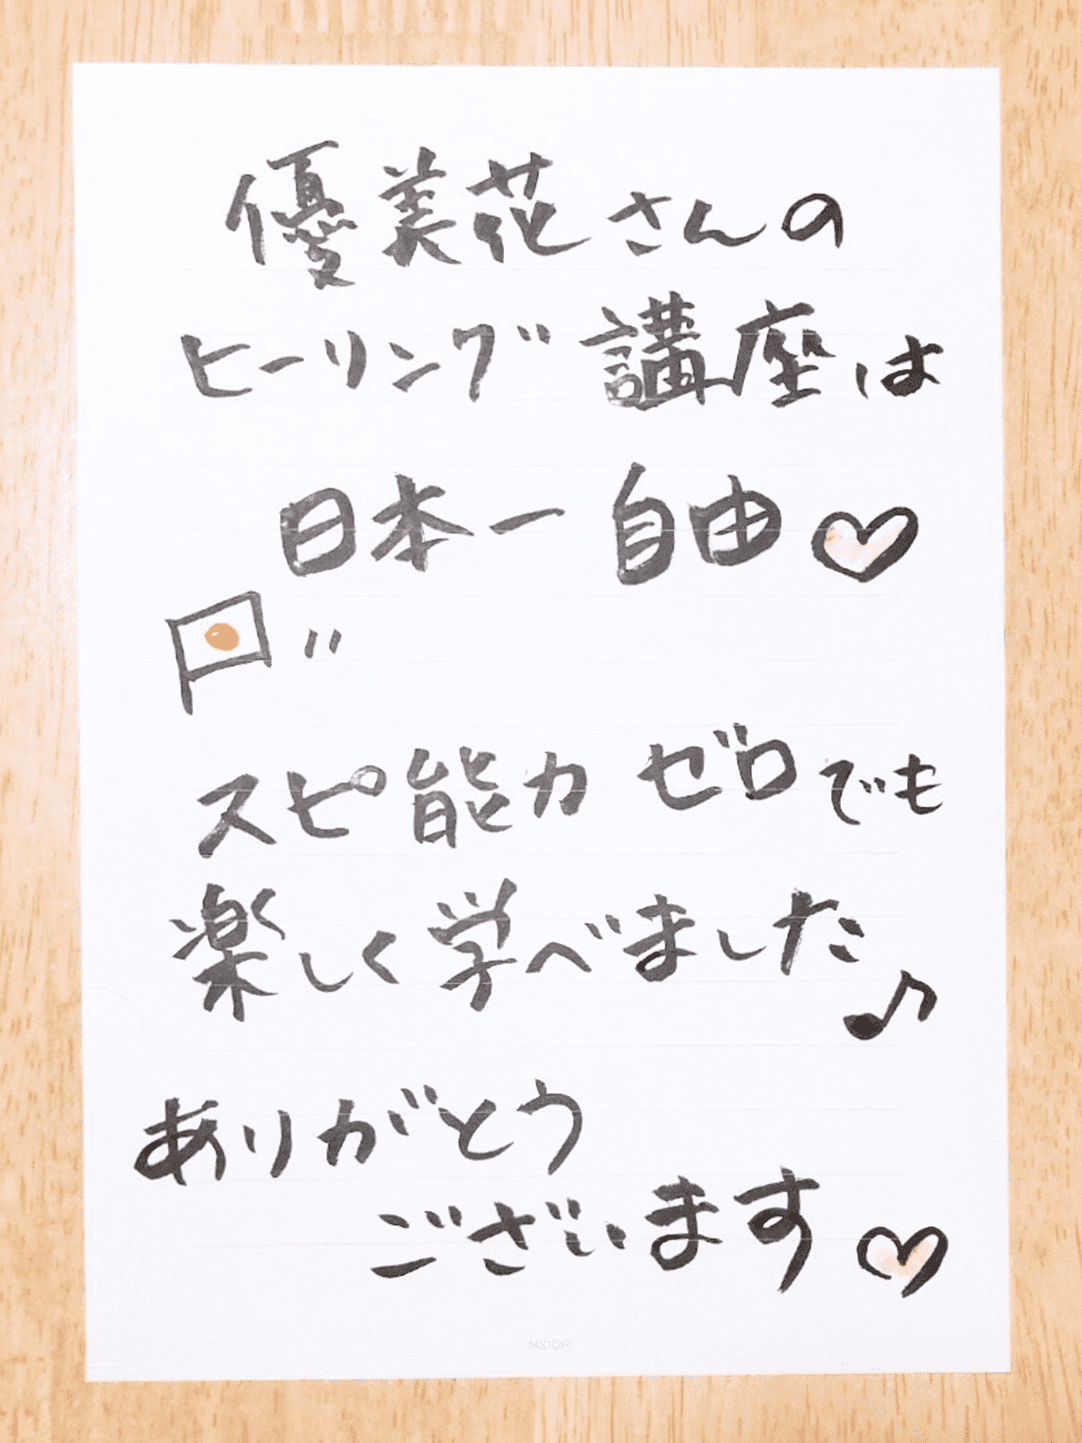 優美花さんの
ヒーリング講座は
日本一自由♡
〃
スピ能力ゼロでも
楽しく学べました♪
ありがとう
ございます♡
MIDORI